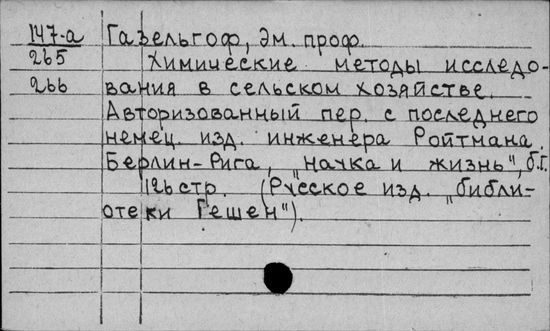 147-а Газельгоф, Эм. проф.
265 Химические методы исследо-
266 вания в сельском хозяйстве.
Авторизованный пер. с последнего
немец. изд. инженера Ройтмана.
Берлин-Рига, "наука и жизнь", б.г.
126 стр. (Русское изд. "библи-
отеки Гешен").